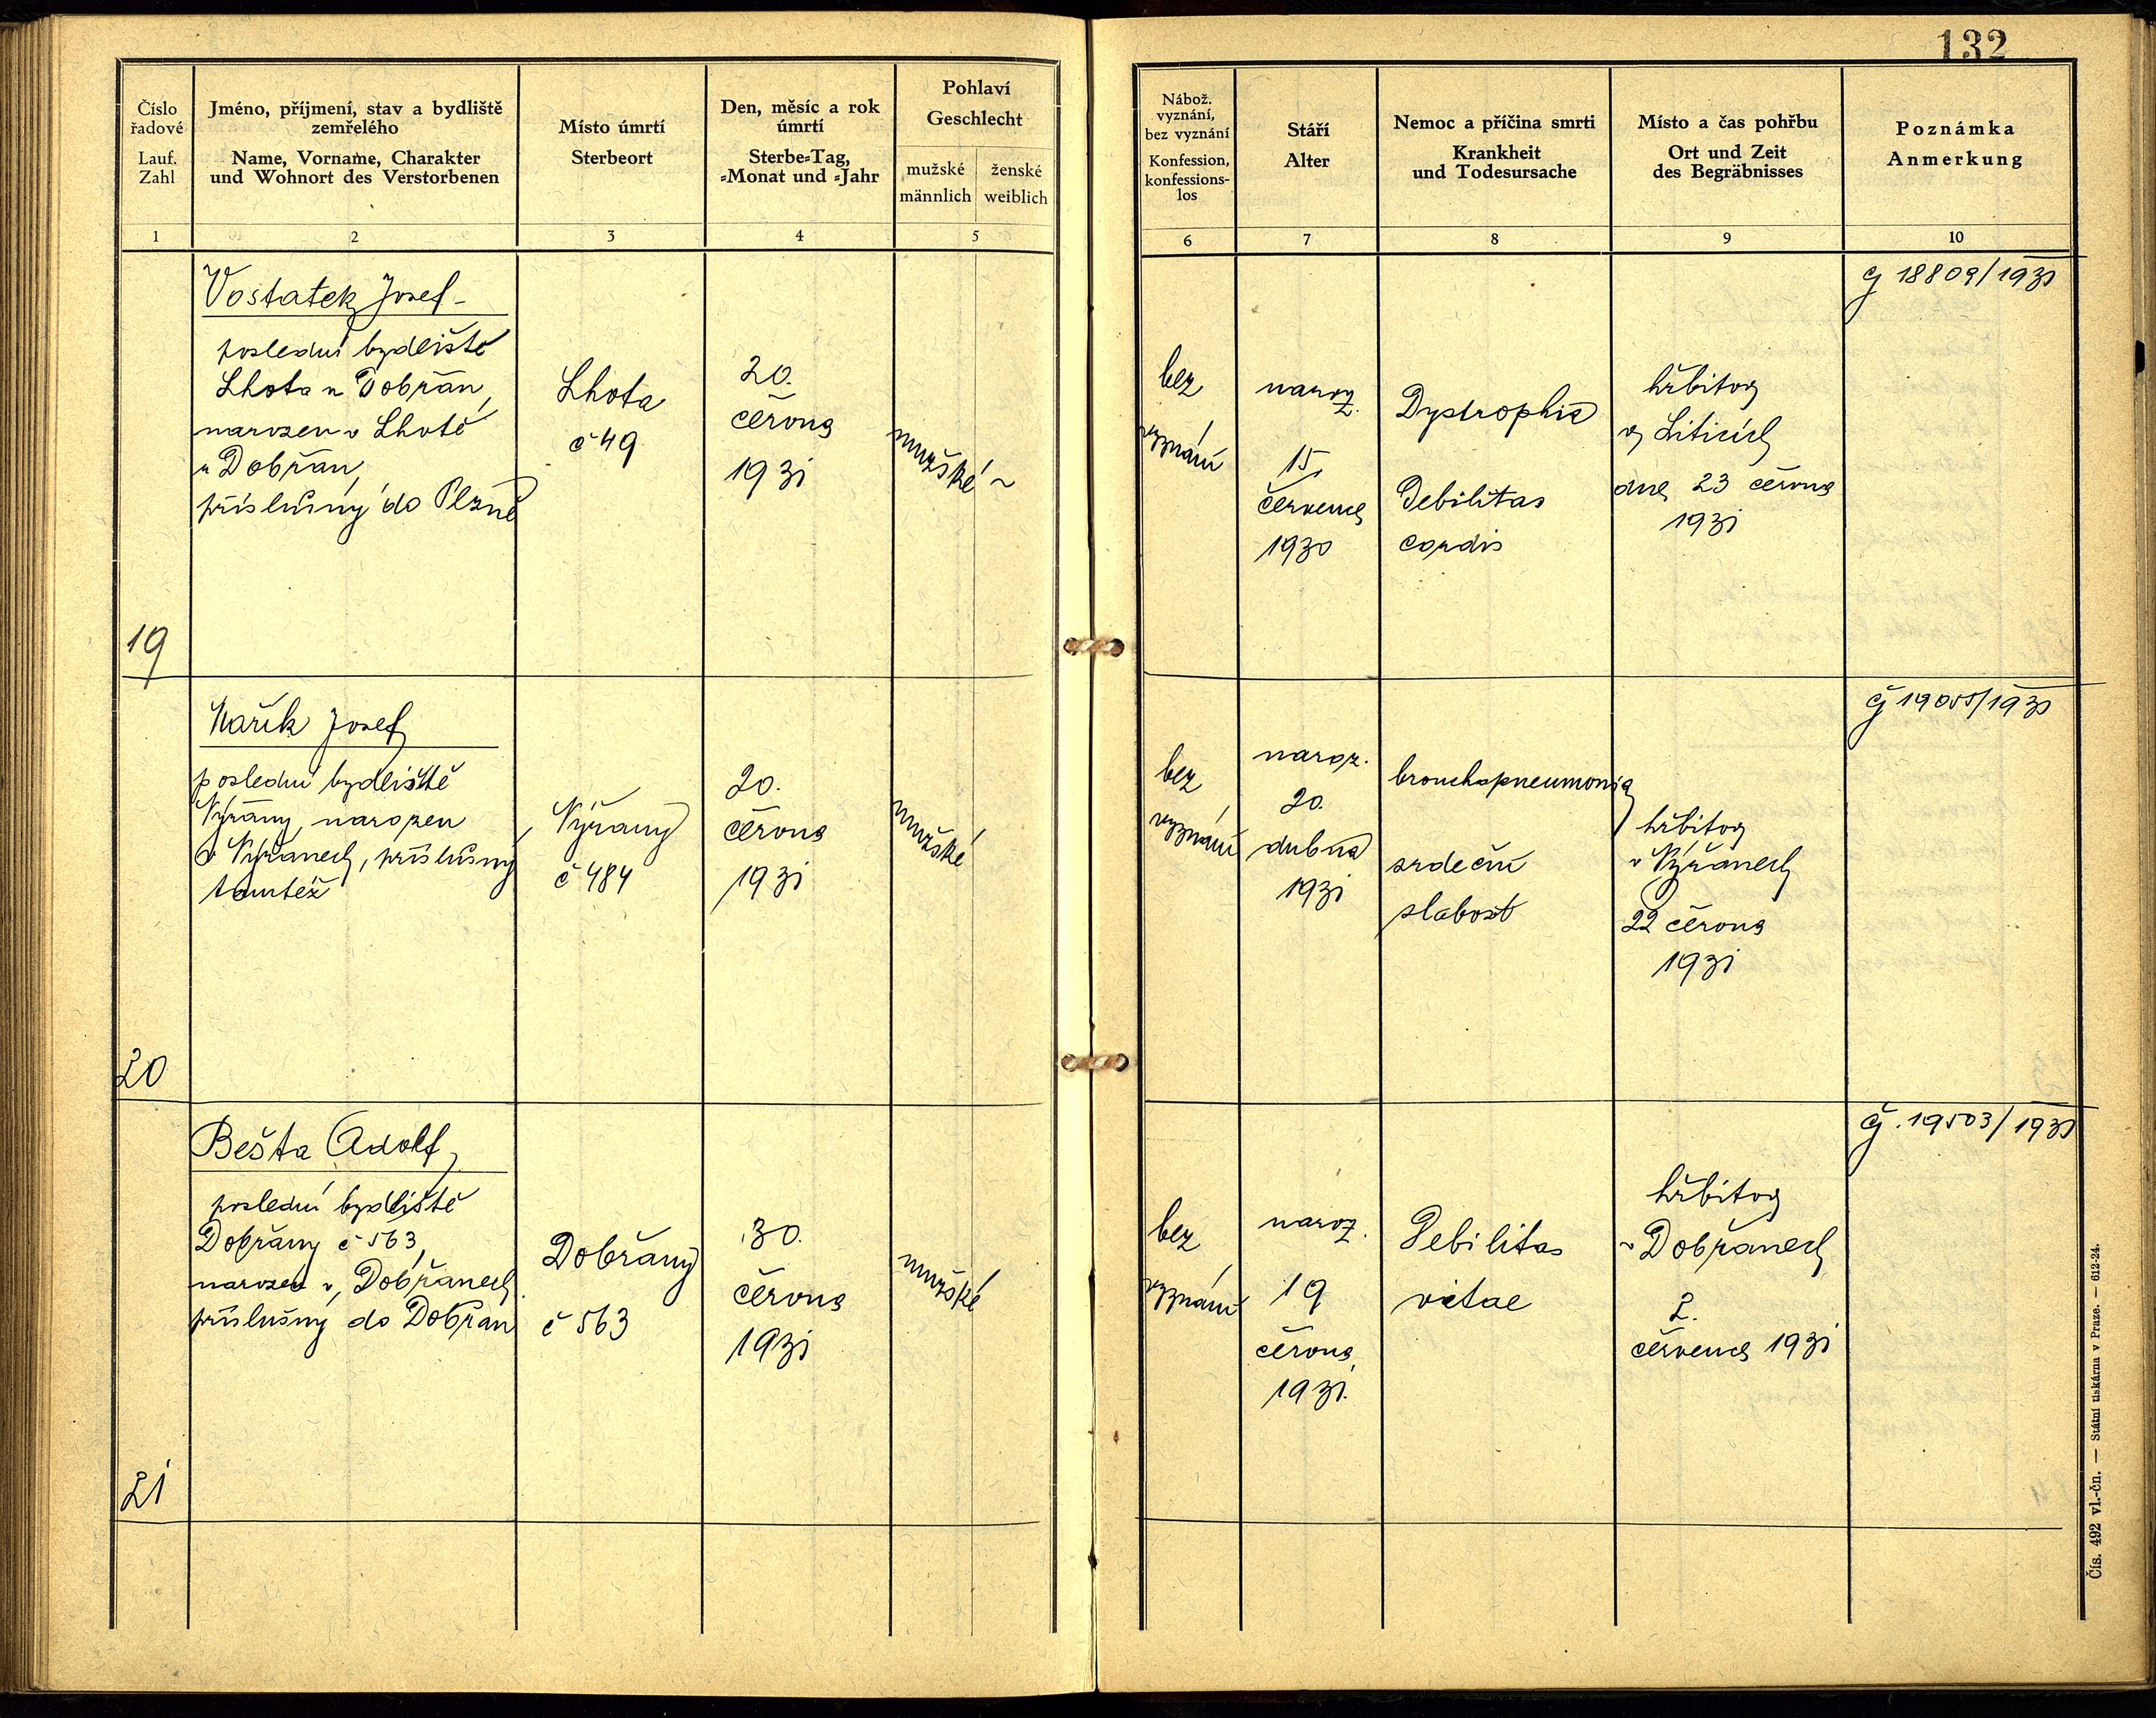 132
Číslo
řadové
Lauf.
Zahl
Jméno, příjmení, stav a bydliště
zemřelého
Name, Vorname, Charakter
und Wohnort des Verstorbenen
Místo úmrtí
Sterbeort
Den, měsíc a rok
úmrtí
Sterbe=Tag,
=Monat und =Jahr
Pohlaví
Geschlecht
mužské
männlich
ženské
weiblich
Nábož.
vyznání,
bez vyznání
Konfession,
konfessions-
los
Stáří
Alter
Nemoc a příčina smrti
Krankheit
und Todesursache
Místo a čas pohřbu
Ort und Zeit
des Begräbnisses
Poznámka
Anmerkung
1 2 3 4 5 6 7 8 9 10
19
Vostatek Josef
poslední bydliště
Lhota u Dobřan,
narozen v Lhotě
u Dobřan,
příslušný do Plzně
Lhota
č 49
20.
června
1931
mužské
bez
vyznání
naroz.
15
července
1930
Dystrophia
Debilitas
cordis
hřbitov
v Liticích
dne 23 června
1931
čj 18809/1931
20
Nařík Josef
poslední bydliště
Nýřany, narozen
v Nýřanech, příslušný
tamtéž
Nýřany
č 484
20.
června
1931
mužské
bez
vyznání
naroz.
20.
dubna
1931
bronchopneumonia
srdeční
slabost
hřbitov
v Nýřanech
22 června
1931
čj 19055/1931
21
Bešta Adolf,
poslední bydliště
Dobřany č 563,
narozen v Dobřanech
příslušný do Dobřan
Dobřany
č 563
30.
června
1931
mužské
bez
vyznání
naroz.
19
června
1931.
Debilitas
vitae
hřbitov
v Dobřanech
2.
července 1931
čj. 19503/1931
Čís. 492 vl.-čn. — Státní tiskárna v Praze. — 612-24.